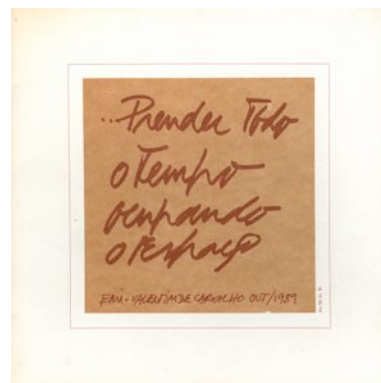 ...Prender Todo
o Tempo
ocupando
o Espaço
EMI-VALENTIM DE CARVALHO OUT/1989